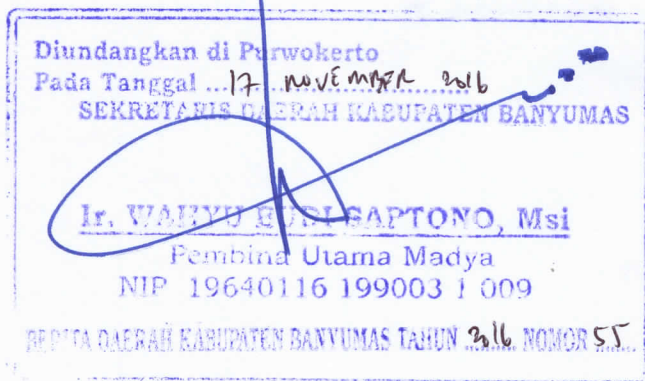 Diundangkan di Purwokerto
Pada Tanggal ...17 NOVEMBER 2016
SEKRETARIS DAERAH KABUPATEN BANYUMAS
Ir. WAHYU BUDI SAPTONO, Msi
Pembina Utama Madya
NIP 19640116 199003 1 009
BERITA DAERAH KABUPATEN BANYUMAS TAHUN 2016 NOMOR 55